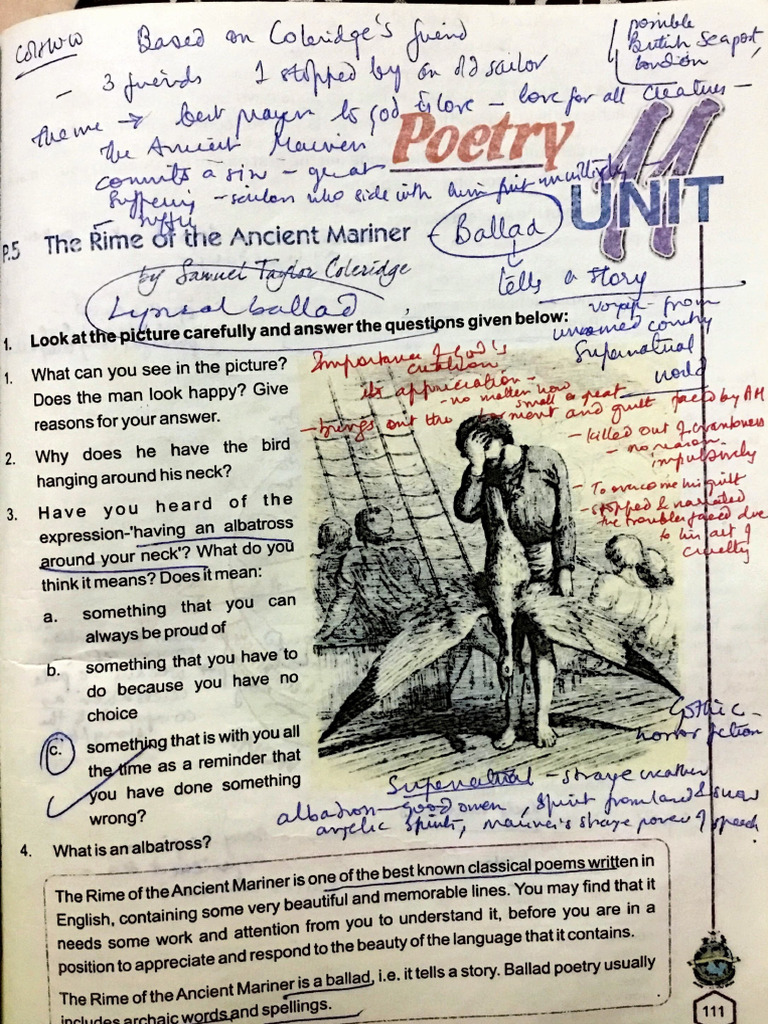 Based on Coleridge's friend
- 3 friends 1 stopped by an old sailor
possible
British Seaport,
London
theme → best prayer to god is love - love for all creatures -
the Ancient Mariner
commits a sin - great
suffering - sailors who side with him
suffer
Poetry
11
UNIT
P.5 The Rime of the Ancient Mariner - Ballad
by Samuel Taylor Coleridge
tells a story
Lyrical ballad
voyage from
unnamed country
Supernatural
world
1. Look at the picture carefully and answer the questions given below:
1. What can you see in the picture?
Does the man look happy? Give
reasons for your answer.
2. Why does he have the bird
hanging around his neck?
3. Have you heard of the
expression-'having an albatross
around your neck'? What do you
think it means? Does it mean:
a. something that you can
always be proud of
b. something that you have to
do because you have no
choice
c. something that is with you all
the time as a reminder that
you have done something
wrong?
4. What is an albatross?
Importance of God's
creation
its appreciation -
- no matter how
small or great
- brings out the torment and guilt faced by AM
- killed out of
- no reason
impulsively
- To overcome his guilt
- stopped & narrated
the troubles faced due
to his act of
cruelty
Gothic -
horror fiction
Supernatural - strange weather
albatross - good omen, spirit from land & snow
angelic spirits, Mariner's strange power of speech
The Rime of the Ancient Mariner is one of the best known classical poems written in
English, containing some very beautiful and memorable lines. You may find that it
needs some work and attention from you to understand it, before you are in a
position to appreciate and respond to the beauty of the language that it contains.
The Rime of the Ancient Mariner is a ballad, i.e. it tells a story. Ballad poetry usually
includes archaic words and spellings.
111